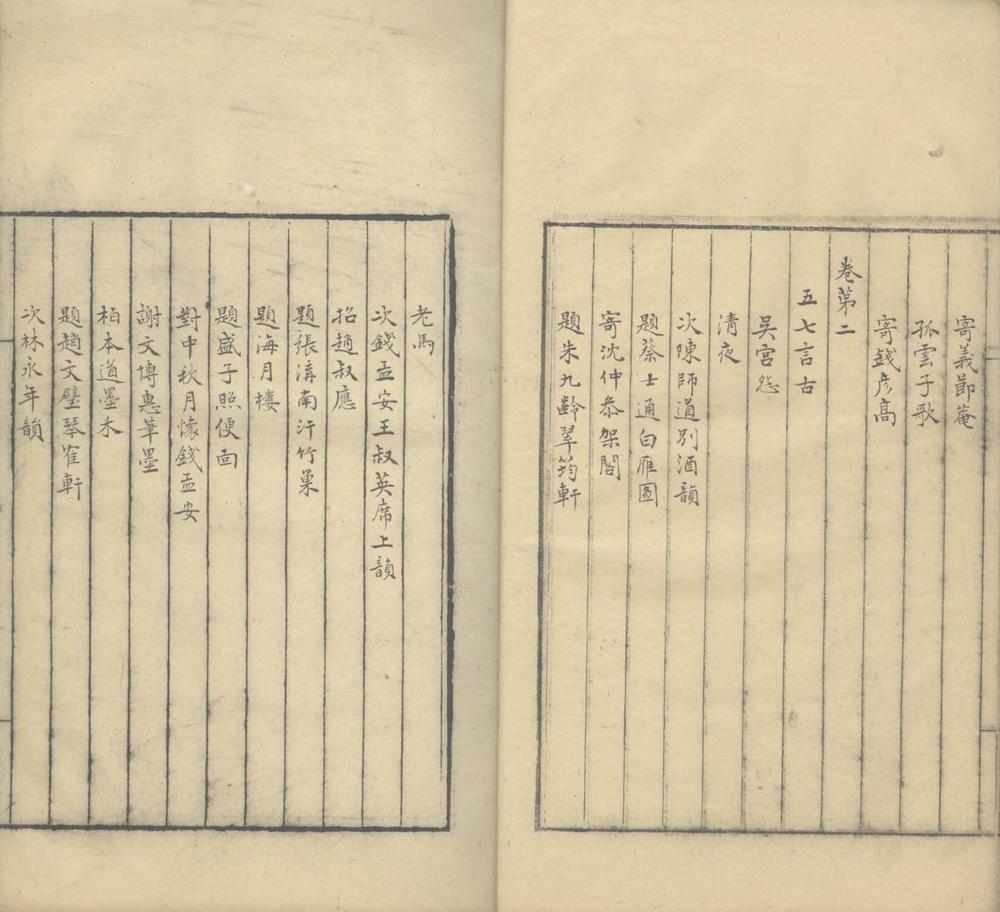 寄義節菴
孤雲子歌
寄錢彥高
卷第二
五七言古
吳宮怨
清夜
次陳師道別酒韻
題蔡士通白雁圖
寄沈仲恭架閣
題朱九齡翠筠軒
老馬
次錢孟安王叔英席上韻
招趙叔應
題張溝南汗竹巢
題海月樓
題盛子照便面
對中秋月懷錢孟安
謝文博惠筆墨
柏本道墨禾
題趙文璧琴隺軒
次林永年韻